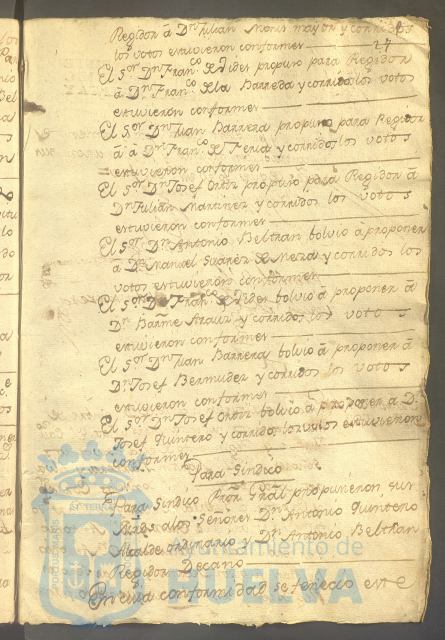 Regidor á Dn Julian Moris mayor y corridos
los votos estuvieron conformes
27
El Sor Dn Franco de Lides propuso para Regidor
á Dn Franco de la Barreda y corridos los votos
estuvieron conformes
El Sor Dn Juan Barrera propuso para Regidor
á á Dn Franco de Feria y corridos los votos
estuvieron conformes
El Sor Dn Josef propuso para Regidor á
Dn Julian Martinez y corridos los votos
estuvieron conformes
El Sor Dn Antonio Beltran bolvio á proponer
á Dn Manuel Suarez de Mera y corridos los
votos estuvieron conformes
El Sor Dn Franco de Lides bolvio á proponer á
Dn Barme y corridos los votos
estuvieron conformes
El Sor Dn Juan Barrera bolvio á proponer á
Dn Josef Bermudez y corridos los votos
estuvieron conformes
El Sor Dn Josef bolvio á proponer á D.
Josef Quintero y corridos los votos estuvieron
conformes
Para Sindico
Para Sindico Pror Gral propusieron sus
Mrds á los Señores Dn Antonio Quintero
Alcalde ordinario y Dn Antonio Beltran
Regidor Decano
En esta conformidad se fenecio este
Ayuntamiento de
HUELVA